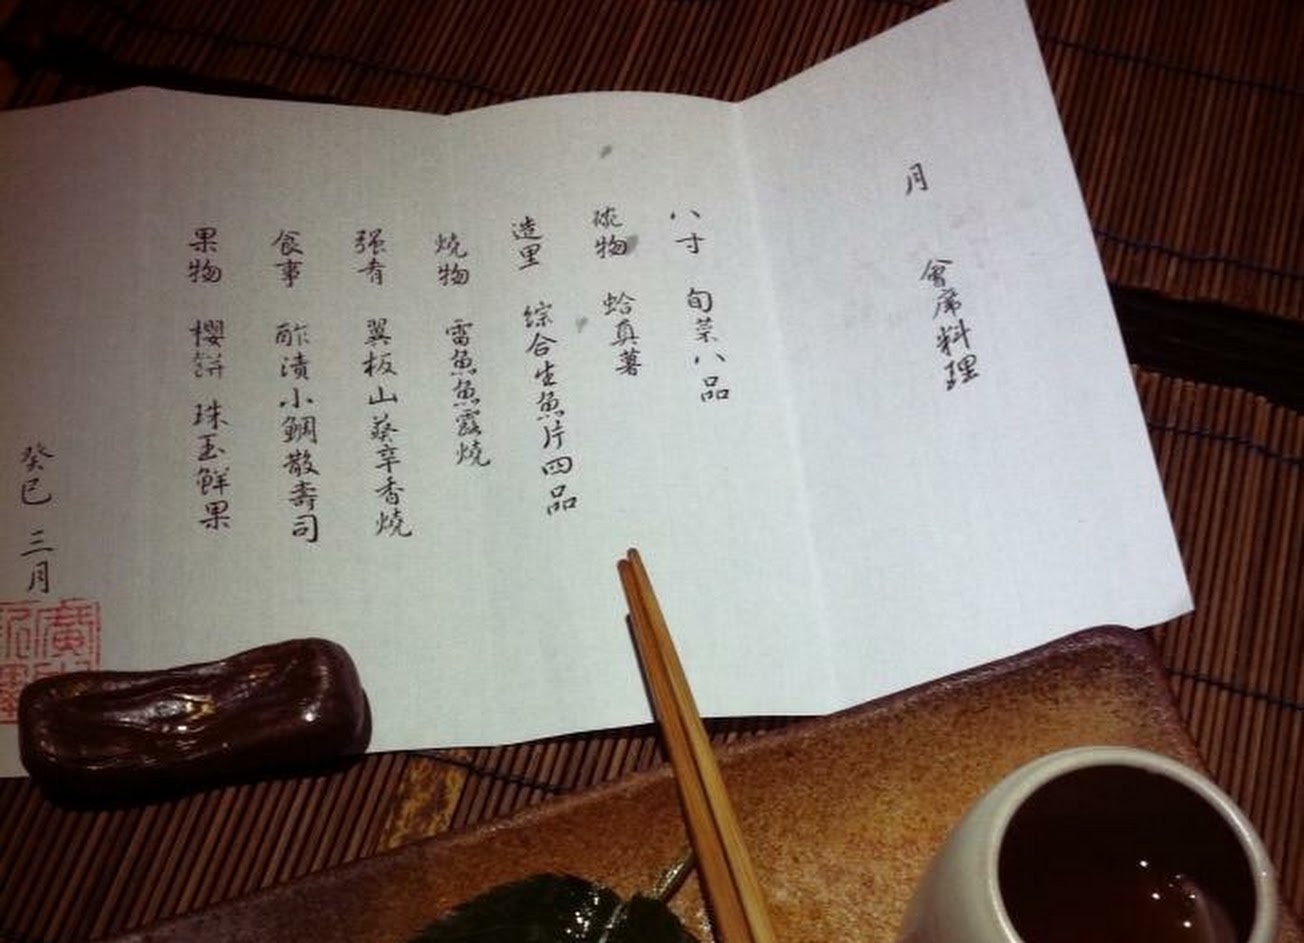 月 會席料理
八寸 旬菜八品
碗物 蛤真薯
造里 綜合生魚片四品
燒物 雷魚魚露燒
强肴 翼板山葵辛香燒
食事 酢漬小鯛散壽司
果物 櫻餅 珠玉鮮果
癸巳 三月